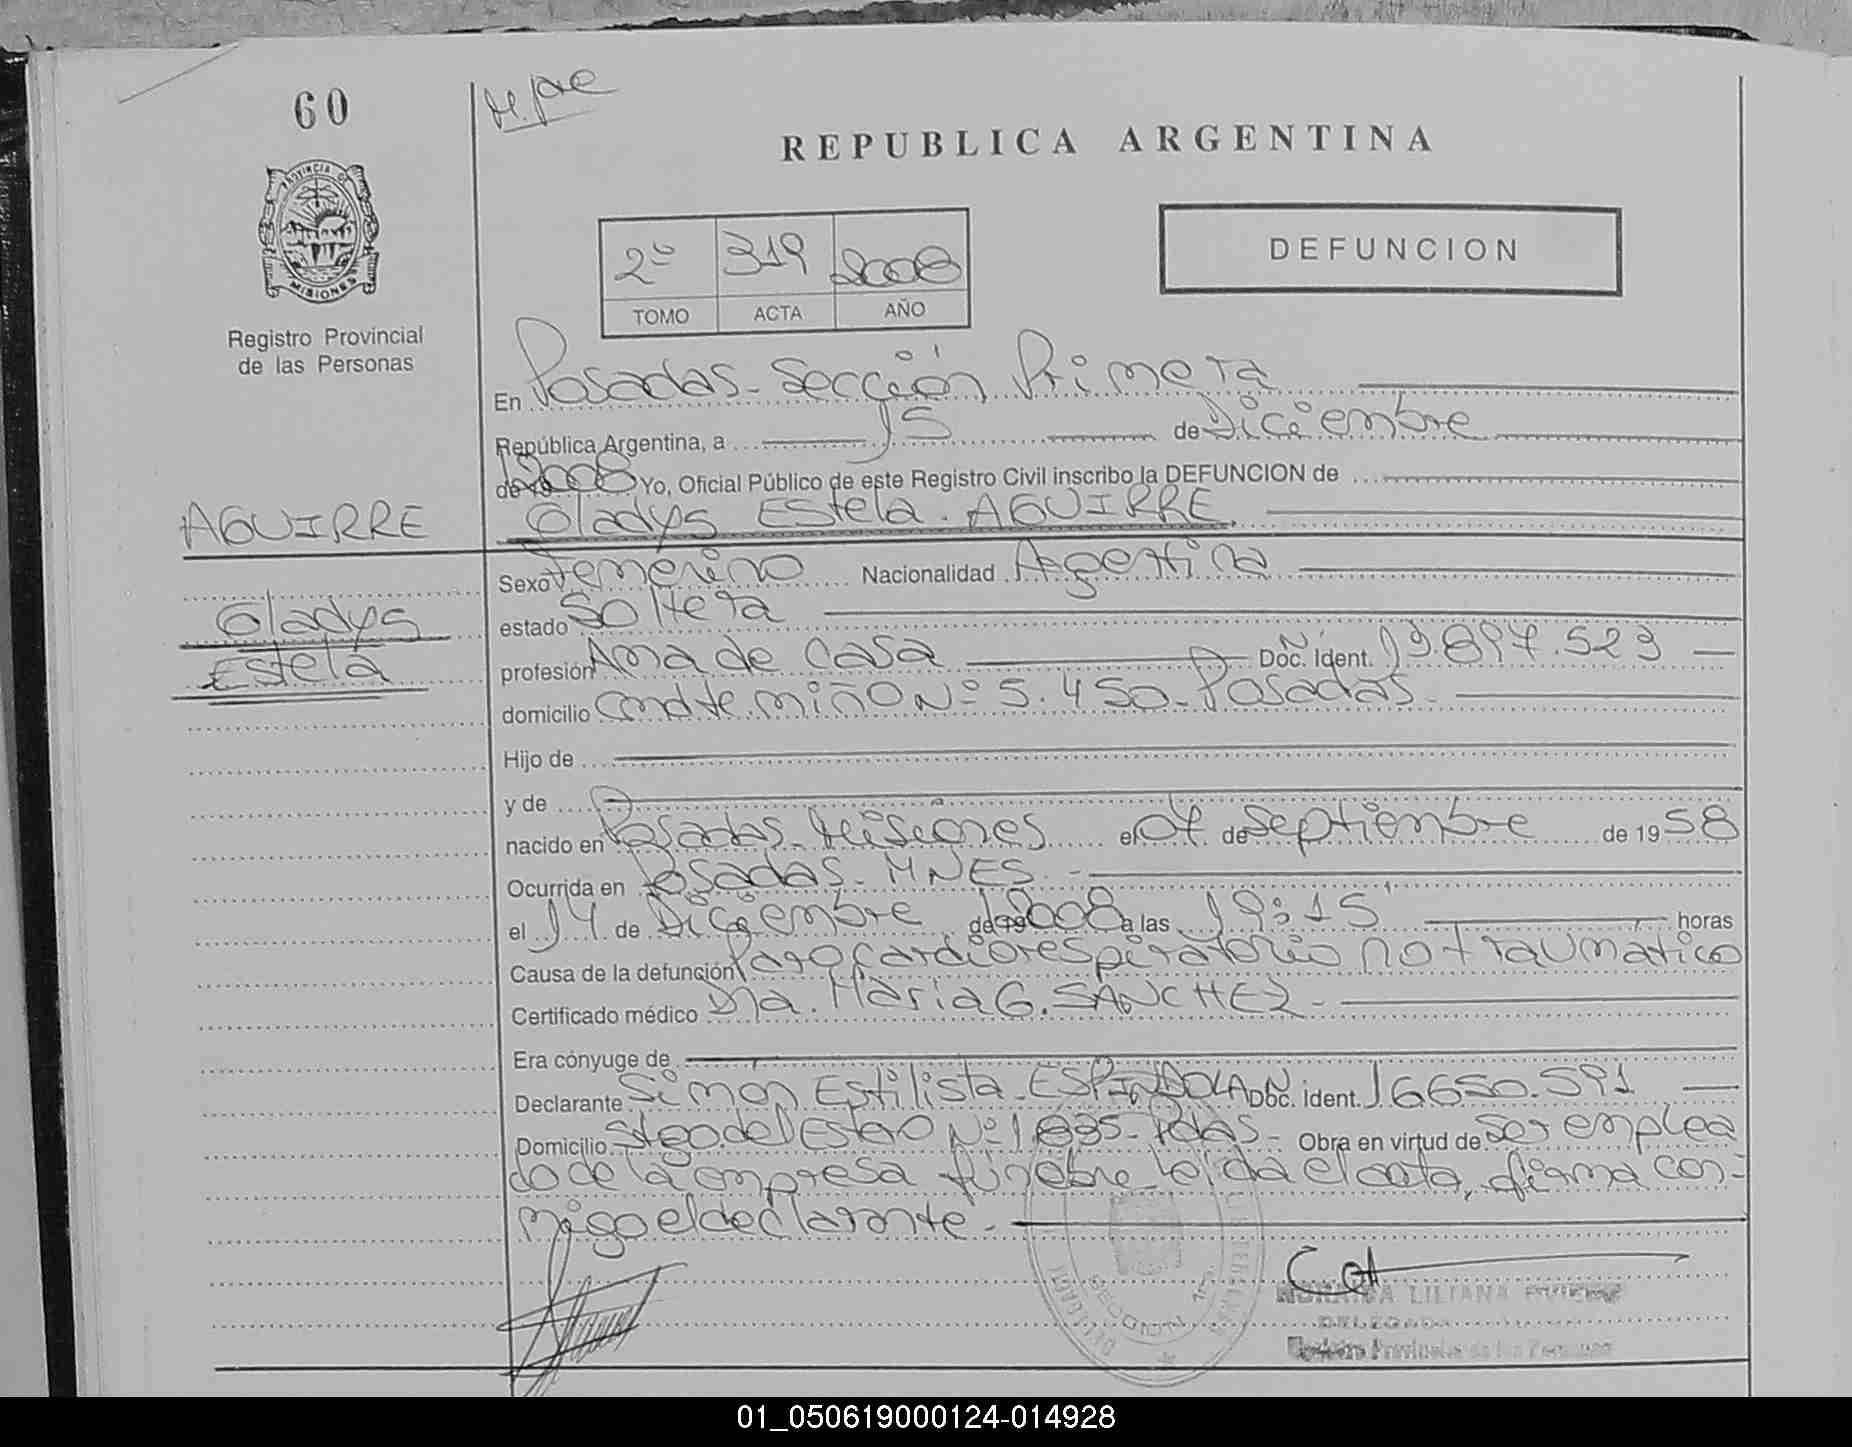 60
PROVINCIA DE
MISIONES
Registro Provincial
de las Personas
REPUBLICA ARGENTINA
2º 319 2008
TOMO ACTA AÑO
DEFUNCION
En Posadas - Sección Primera
República Argentina, a 15 de Diciembre
de 2008 Yo, Oficial Público de este Registro Civil inscribo la DEFUNCION de
AGUIRRE
Gladys Estela AGUIRRE
Gladys
Estela
Sexo Femenino Nacionalidad Argentina
estado Soltera
profesión Ama de Casa Doc. Ident. 13.897.523
domicilio Cmdte. Miño Nº 5.450 - Posadas.
Hijo de
y de
nacido en Posadas - Misiones el 07 de Septiembre de 1958
Ocurrida en Posadas - MNES.
el 14 de Diciembre de 2008 a las 19:15 horas
Causa de la defunción Paro cardiorespiratorio no traumatico
Certificado médico Dra. Maria G. SANCHEZ -
Era cónyuge de
Declarante Simon Estilista ESPINDOLA Doc. ident. 16650.591
Domicilio Stgo. del Estero Nº 1.835 - Pdas - Obra en virtud de ser emplea
do de la empresa fúnebre - leida el acta, firma con-
migo el declarante. -
SECCION 1RA
LILIANA
DELEGADA
Registro Provincial de las Personas
01_050619000124-014928